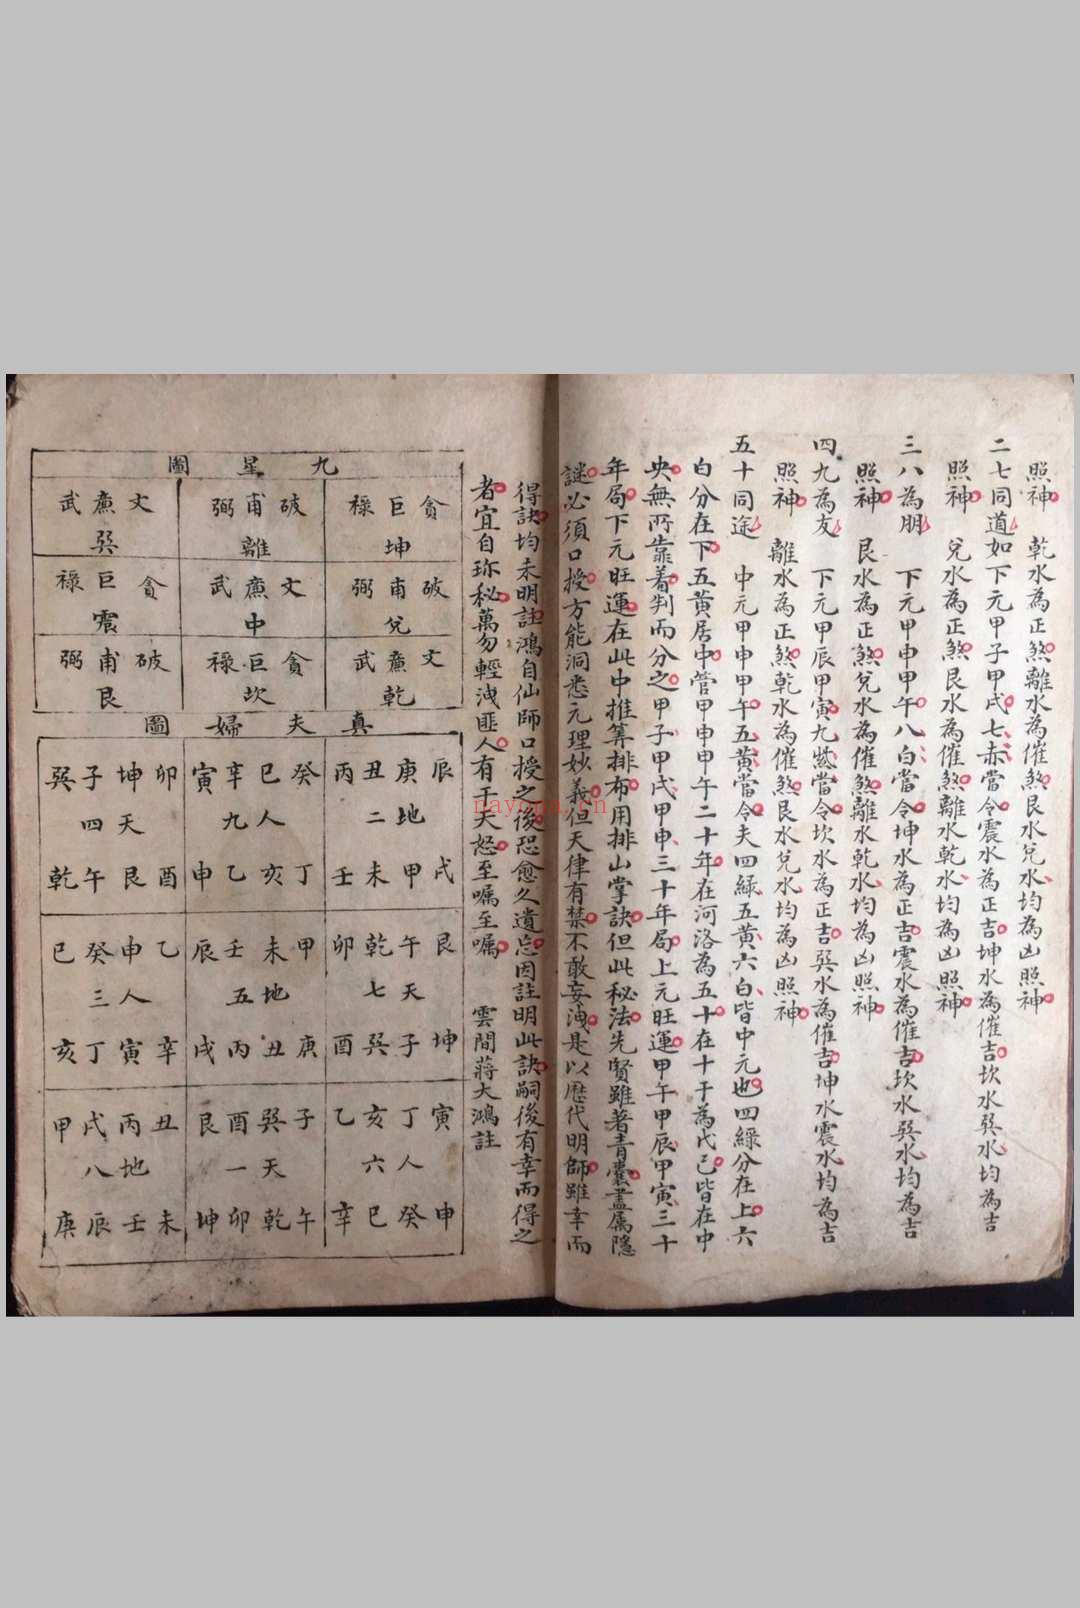 照神　乾水為正煞離水為催煞艮水兌水均為凶照神
二七同道如下元甲子甲戌七赤當令震水為正吉坤水為催吉坎水巽水均為吉
照神　兌水為正煞艮水為催煞離水乾水均為凶照神
三八為朋　下元甲申甲午八白當令坤水為正吉震水為催吉坎水巽水均為吉
照神　艮水為正煞兌水為催煞離水乾水均為凶照神
四九為友　下元甲辰甲寅九紫當令坎水為正吉巽水為催吉坤水震水均為吉
照神　離水為正煞乾水為催煞艮水兌水均為凶照神
五十同途　中元甲申甲午五黃當令夫四綠五黃六白皆中元也四綠分在上六
白分在下五黃居中管甲申甲午二十年在河洛為五十在十干為戊己皆在中
央無所靠着判而分之甲子甲戌甲申三十年局上元旺運甲午甲辰甲寅三十
年局下元旺運在此中推算排布用排山掌訣但此秘法先賢雖著青囊盡属隱
謎必須口授方能洞悉元理妙義但天律有禁不敢妄洩是以歷代明師雖幸而
得訣均未明註鴻自仙師口授之後恐愈久遺忘因註明此訣嗣後有幸而得之
者宜自珍秘萬勿輕洩匪人有干天怒至囑至囑　雲間蔣大鴻註
九星圖
貪巨祿
坤
破甫弼
離
文廉武
巽
破甫弼
兌
文廉武
中
貪巨祿
震
文廉武
乾
貪巨祿
坎
破甫弼
艮
真夫婦圖
辰庚丑丙
地二
戌甲未壬
癸巳辛寅
人九
丁亥乙申
卯坤子巽
天四
酉艮午乾
艮午乾卯
天七
坤子巽酉
甲未壬辰
地五
庚丑丙戌
乙申癸巳
人三
辛寅丁亥
寅丁亥乙
人六
申癸巳辛
子巽酉艮
天一
午乾卯坤
丑丙戌甲
地八
未壬辰庚
nayona.cn